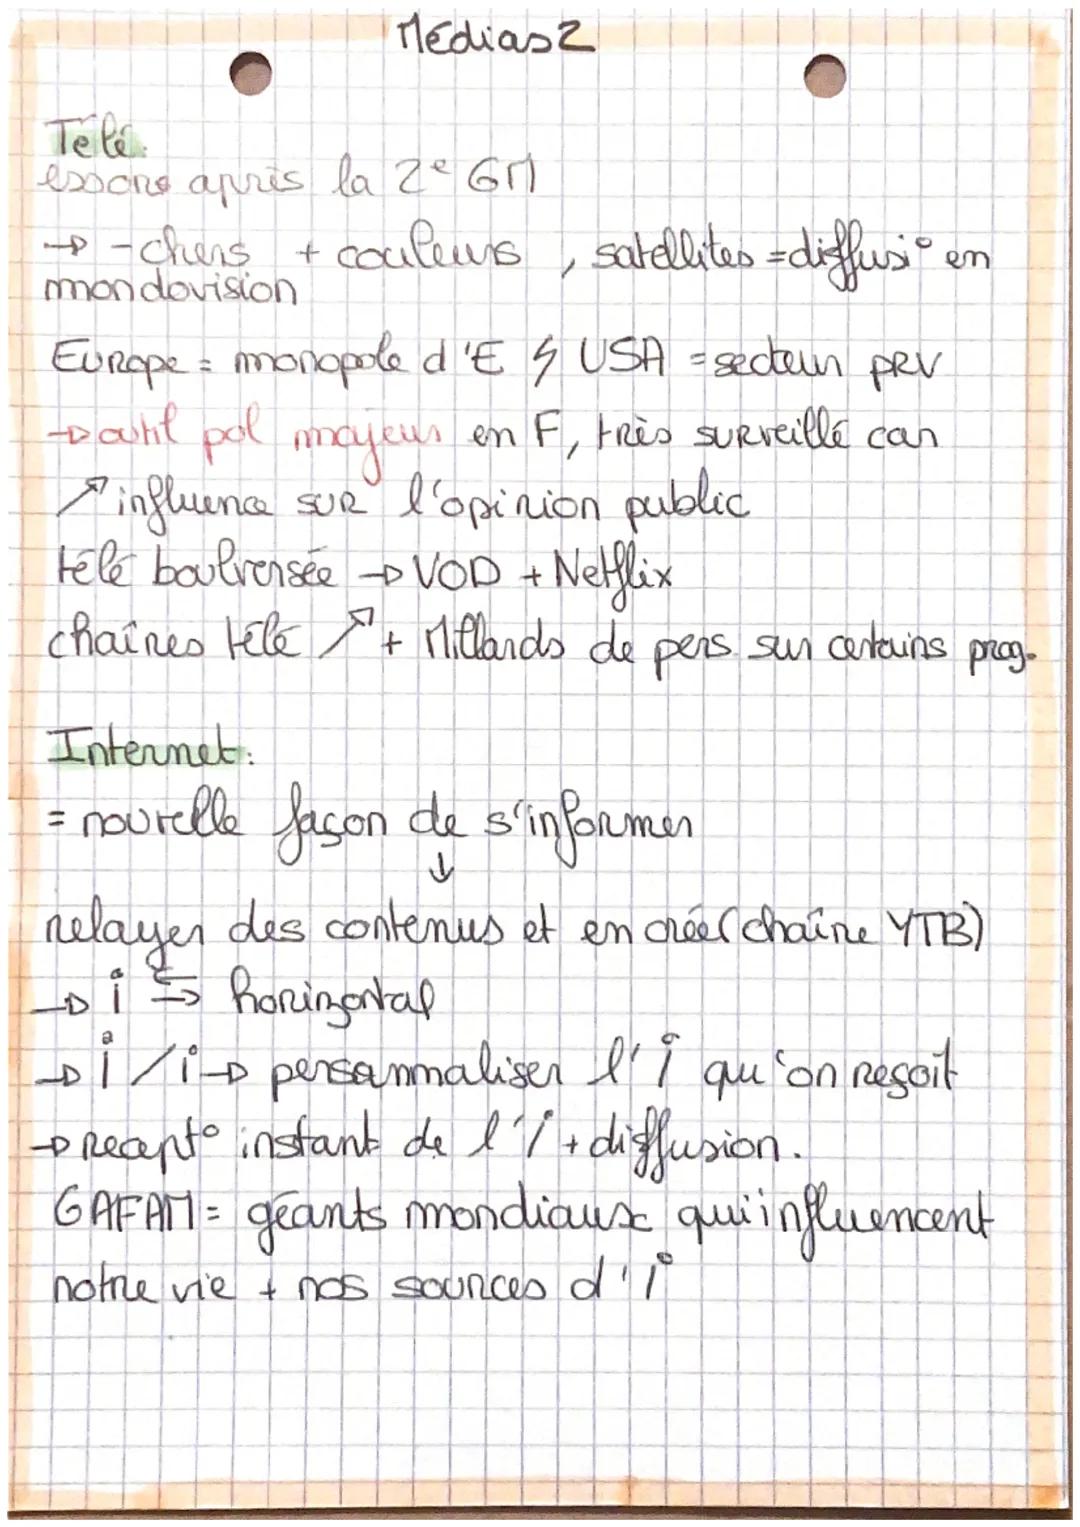 Médias 2
Télé:
essore après la 2e GM
→ - chers + couleurs, satellites = diffusi° en
mondovision
Europe = monopole d'E ↯ USA = secteur PRV
→ outil pol majeur en F, très surveillé car
↗ influence sur l'opinion public
télé boulversée → VOD + Netflix
chaînes télé ↗ + Millards de pers sur certains prog.
Internet:
= nouvelle façon de s'informer
↓
relayer des contenus et en créer (chaîne YTB)
→ i ⇆ horizontal
→ i / i → personnaliser l'i qu'on reçoit
→ recept° instant de l'i + diffusion.
GAFAM = géants mondiaux qui influencent
notre vie + nos sources d'i